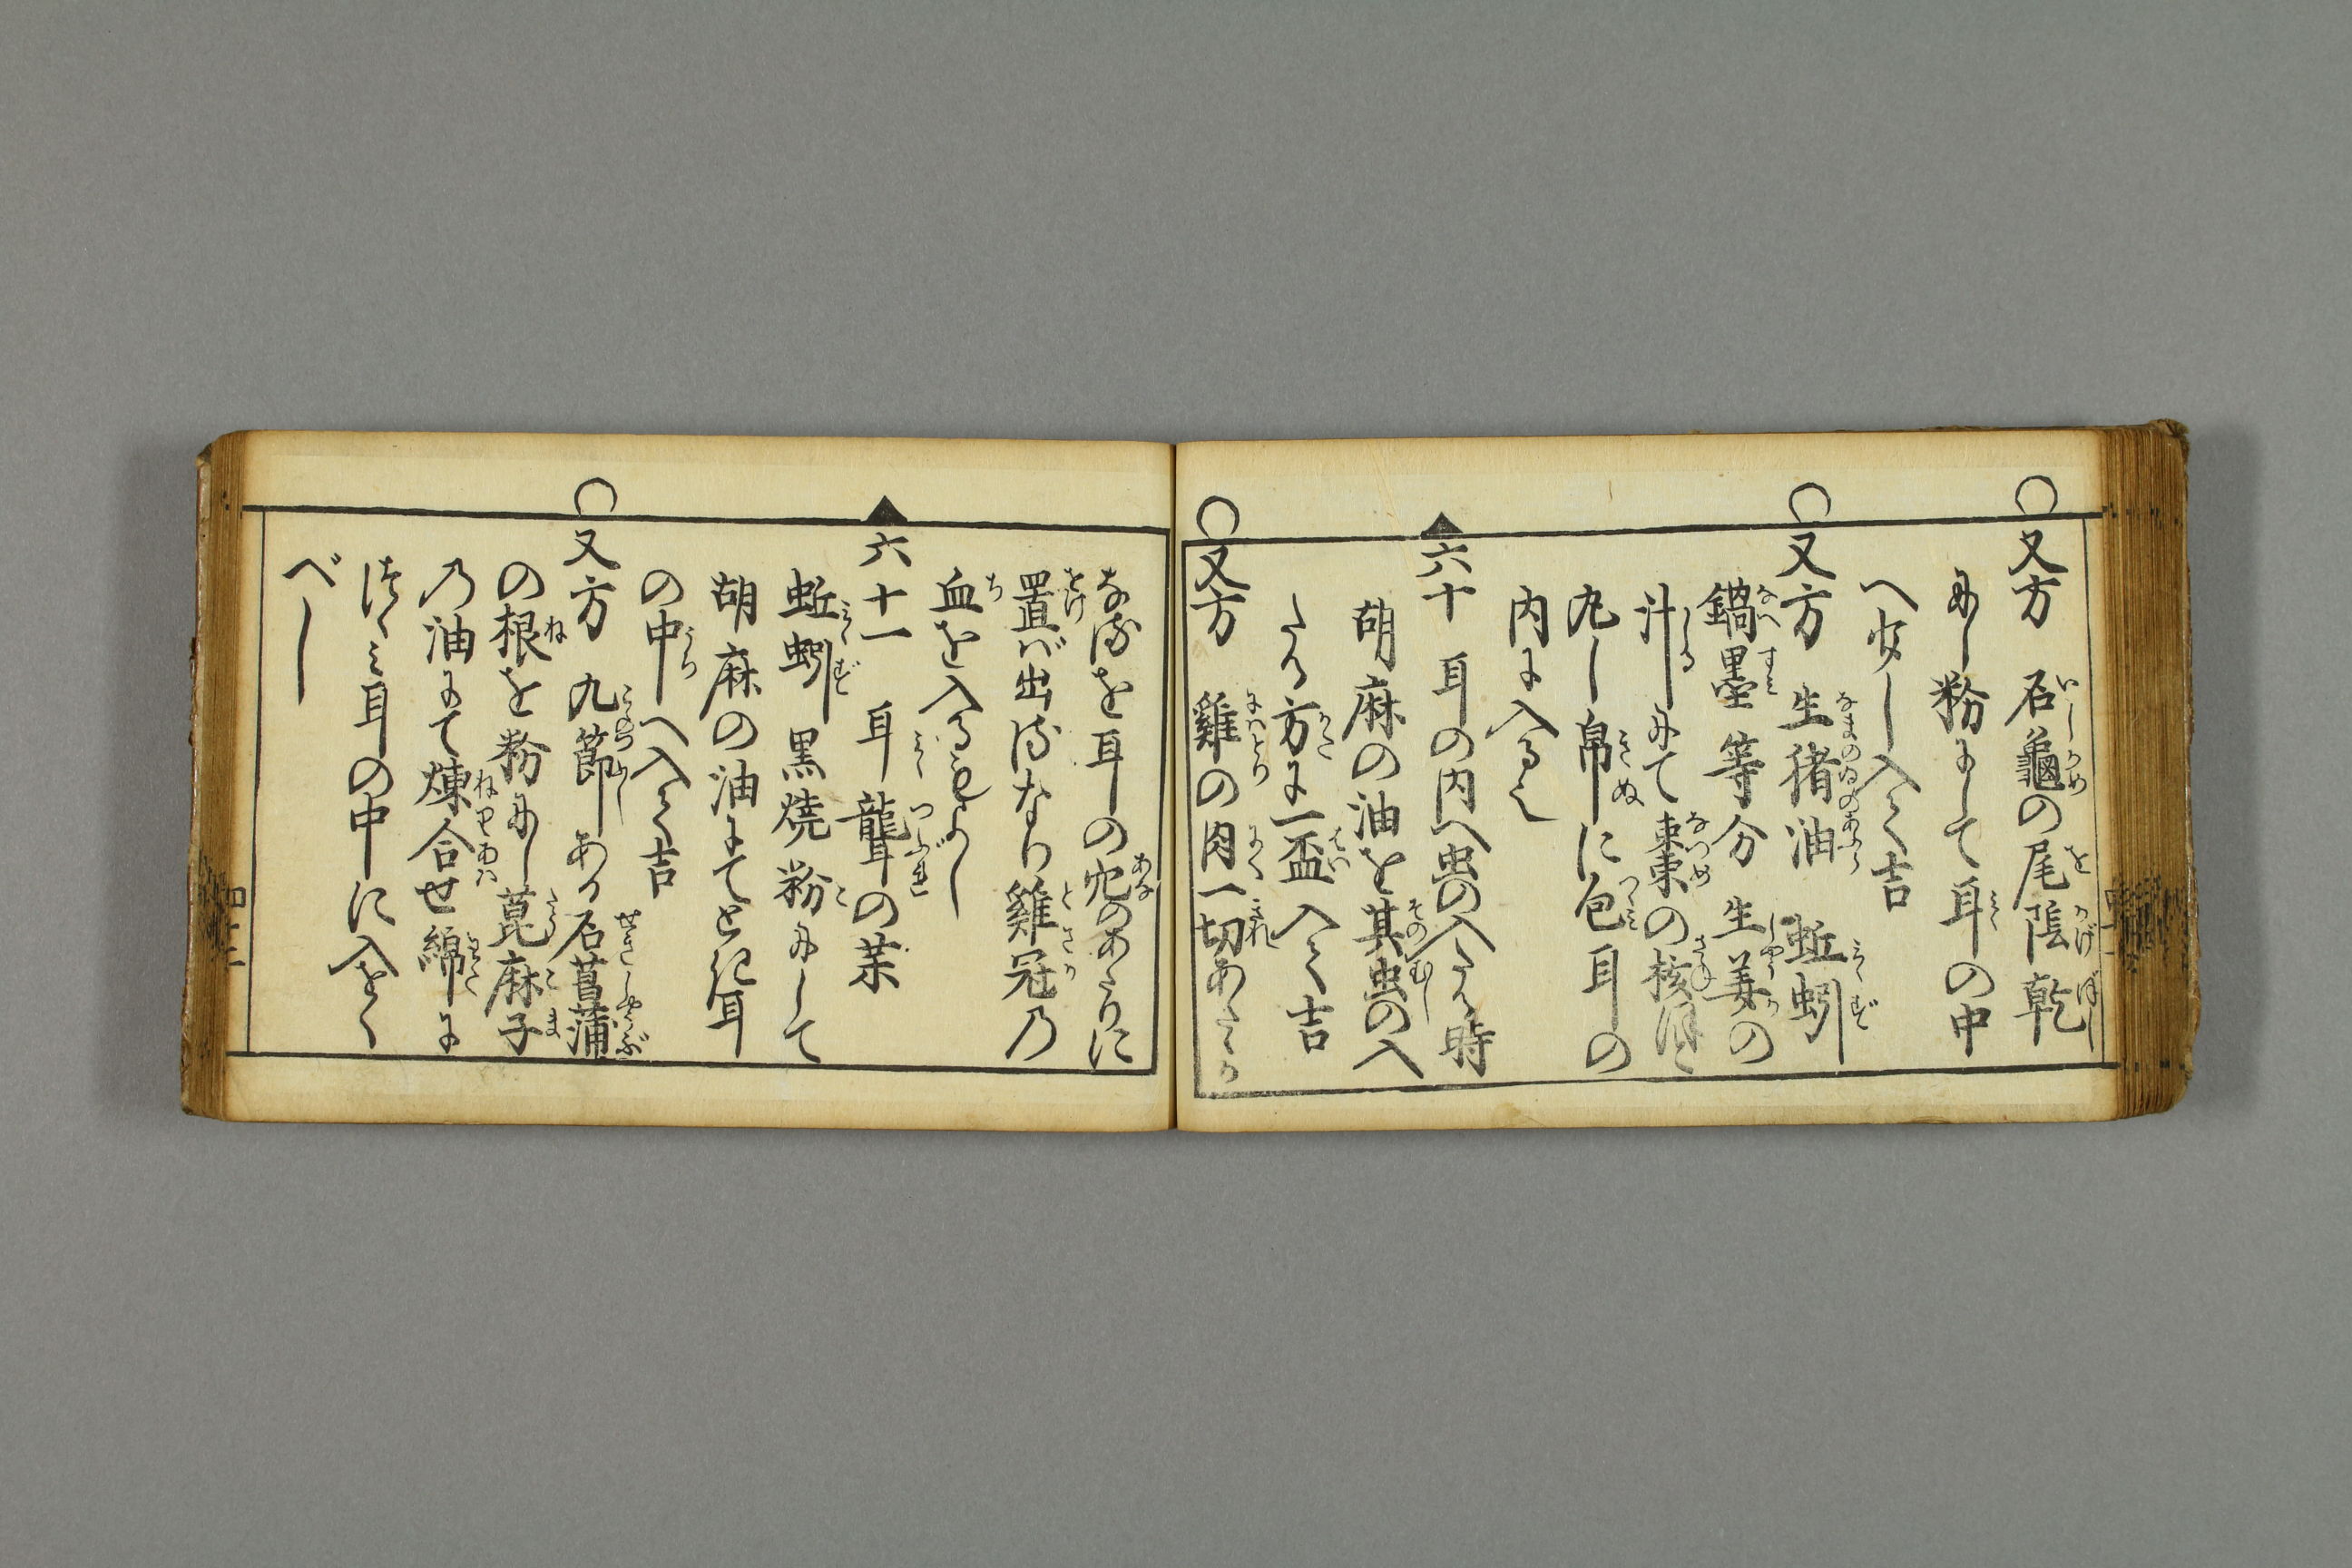 又方 石龜の尾陰乾
にし粉にして耳の中
へ少し入て吉
又方 生猪油 蚯蚓
鍋墨等分 生姜の
汁にて棗の核ほと
丸し帛に包耳の
内に入る也
六十 耳の内へ虫の入たる時
胡麻の油を其虫の入
たる方に一盃入て吉
又方 雞の肉一切あたゝか
なるを耳の穴のあたりに
置ば出るなり雞冠乃
血を入るもよし
六十一 耳聾の薬
蚯蚓黒焼粉にして
胡麻の油にてとき耳
の中へ入て吉
又方 九節ある石菖蒲
の根を粉にし萞麻子
乃油にて煉合せ綿に
つゝみ耳の中に入をく
べし